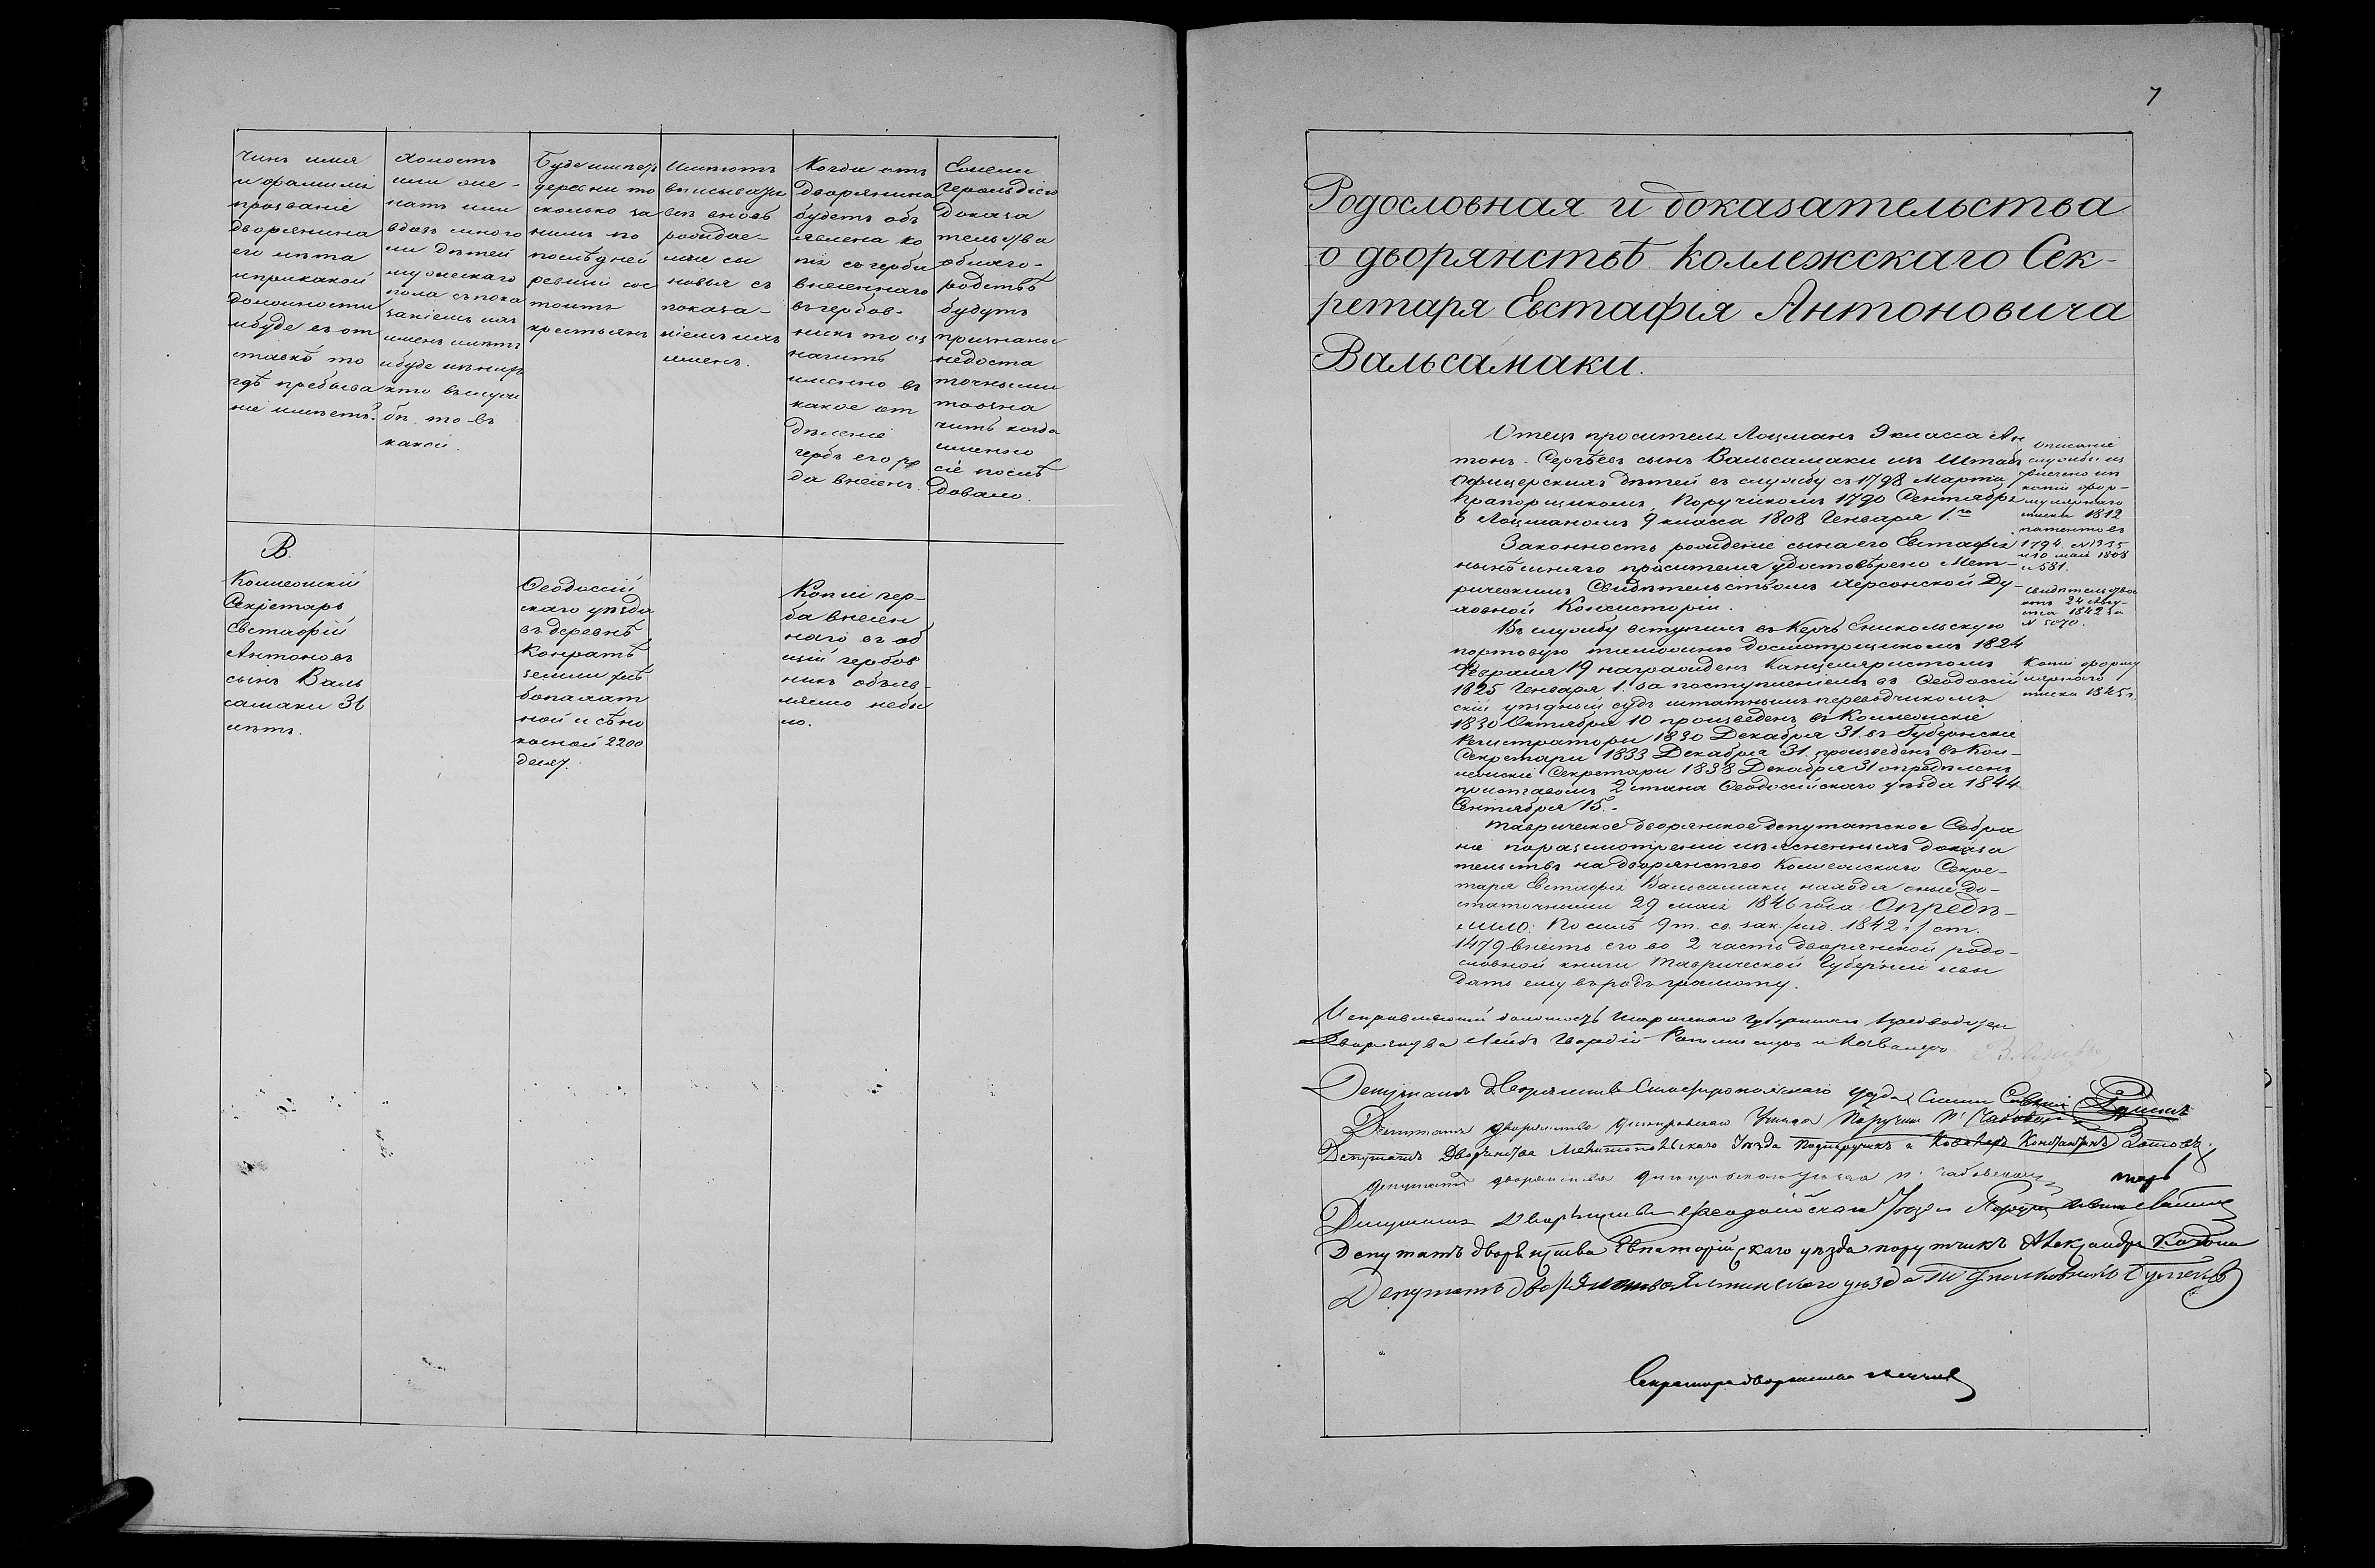 Чинъ имя
и фамилія
прозваніе
дворянина
его лѣта
и при какой
должности
и буде въ от
ставкѣ то
гдѣ пребыва
ніе имѣетъ?
Холостъ
или же-
натъ или
вдовъ много
ли дѣтей
мужескаго
пола съ пока
заніемъ ихъ
именъ лѣтъ
и буде изъ нихъ
кто въ служ
бѣ, то въ
какой.
Буде имѣетъ
деревни то
сколько за
нимъ по
послѣдней
ревизіи сос
тоитъ
крестьянъ
Имѣютъ
вписыватьс
всѣ вновь
рождае-
мые сы
новья съ
показа-
ніемъ ихъ
именъ.
Когда отъ
дворянина
будетъ объ
явлена ко
пія съ герба
внесеннаго
въ гербов-
никъ то оз
начить
именно въ
какое от
дѣленіе
гербъ его ро
да внесенъ.
Ежели
Герольдіею
доказа
тельства
облаго-
родствѣ
будутъ
признаны
недоста
точными
то озна
чить когда
именно
сіе послѣ
довало.
В.
Коллежскій
Секретарь
Евстафій
Антоновъ
сынъ Валь
самаки 36
лѣтъ.
Ѳеодосій
скаго уѣзда
въ деревнѣ
Конратѣ
земли хлѣ
бопахат
ной и сѣно
косной 2200
десят.
Копіи гер-
ба внесен
наго въ об
щій гербов
никъ объяв-
ляемо небы
ло.
7
Родословная и доказательства
о дворянствѣ Коллежскаго Сек-
ретаря Евстафія Антоновича
Вальсамаки.
Отецъ просителя Лоцманъ 9 класса Ан
тонъ Сергѣевъ сынъ Вальсамаки изъ Штабъ
Офицерскихъ дѣтей въ службу съ 1798 Марта
Прапорщикомъ, Поручикомъ 1790 Сентября
6 Лоцманомъ 9 класса 1808 Генваря 1.го
Описаніе
службы из
влечено из
копіи фор-
мулярнаго
списка 1812
патентовъ
1794 № 1355
и 10 маія 1808
№ 581.
Законность рожденіе сына его Евстафія
нынѣшняго просителя удостовѣрено Мет-
рическимъ Свидѣтельствомъ Херсонской Ду-
ховной Консисторіи.
Свидѣтельство
отъ 24 Авгу-
ста 1842 за
№ 5070.
Въ службу вступилъ въ Керчь Еникольскую
портовую таможню Досмотрщикомъ 1824
Февраля 19 награжденъ Канцеляристомъ
1825 Генваря 1. за поступленіемъ въ Ѳеодосій
скій уѣздный судъ штатнымъ переводчикомъ
1830 Октября 10 произведенъ въ Коллежскіе
Регистраторы 1830 Декабря 31. въ Губернскіе
Секретари 1833 Декабря 31 произведенъ въ Кол-
лежскіе Секретари 1838 Декабря 31 опредѣленъ
приставомъ 2 стана Ѳеодосійскаго уѣзда 1844
Сентября 15.-
Копія форму
лярнаго
списка 1845 г.
Таврическое дворянское депутатское Собра
ніе по разсмотреніи изъясненныхъ доказа
тельствъ на дворянство Коллежскаго Секре-
таря Евстафія Вальсамаки находя оные до-
статочными 29 маія 1846 года Опредѣ-
лило: По силѣ 9 т. св. зак. /изд. 1842 г./ ст.
1479 внесть его во 2 часть дворянской родо-
словной книги Таврической Губерніи и вы
дать ему въ родъ грамоту.
Исправляющій должность Губернскаго Предводителя
Дворянства Лейбъ Гвардіи Ротмистръ и Кавалеръ
Депутатъ Дворянства Симферопольскаго уѣзда
Депутатъ дворянства Днѣпровскаго Уѣзда Поручикъ
Депутатъ Дворянства Мелитопольскаго Уѣзда Подпоручикъ и Кавалеръ Константинъ Зотовъ.
Депутатъ дворянства Днѣпровскаго уѣзда
Депутатъ Дворянства Ѳеодосійскаго Уѣзда
Депутатъ дворянства Евпаторійскаго уѣзда поручикъ Александръ
Депутатъ дворянства Ялтинскаго уѣзда
Секретарь дворянства